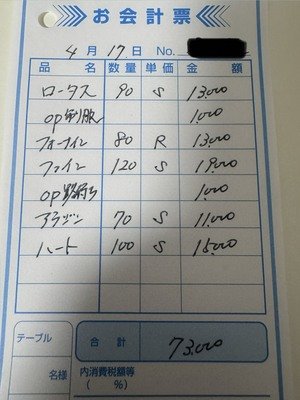 お会計票
4月17日 No.
品名 数量 単価 金額
ロータス 90 S 13,000
op制服 1,000
フォーナイン 80 R 13,000
ファイン 120 S 19,000
op 1,000
アラジン 70 S 11,000
ハート 100 S 15,000
テーブル
名様
合計 73,000
内消費税額等
( %)